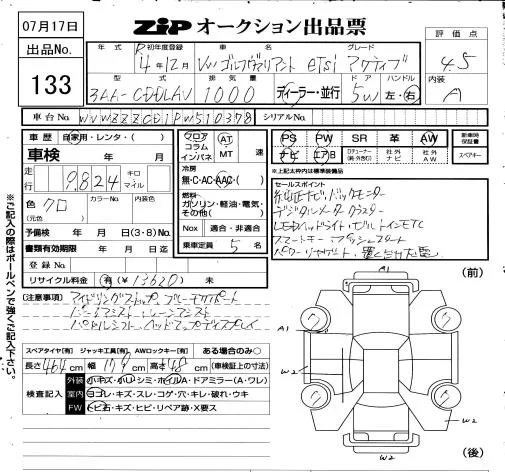 07月17日
ZiP オークション出品票
出品No.
133
年式 R 初年度登録 車名 グレード 評価点
4年12月 VWゴルフヴァリアント eTSI アクティブ 4.5
型式 排気量 ドア ハンドル 内装
3AA-CDDLAV 1000 ディーラー・並行 5W 左・右 A
車台No. WVWZZZCD1PW510378 シリアルNo.
車歴 自家用・レンタ・( )
車検 年 月
走行 9,824 キロ マイル
色 クロ (元色) カラーNo. 内装色
予備検 年 月 日(3・8)No.
書類有効期限 年 月 日迄
登録No.
リサイクル料金 有(¥13620)
フロア コラム インパネ AT・MT 速
冷房 無・C・AC・AAC・( )
燃料 ガソリン・軽油・電気・その他( )
Nox 適合・非適合
乗車定員 5 名
PS PW SR 革 AW
ナビ エアB Dチューナー(純・外含む) 社外ナビ 社外AW
新車時保証書
スペアキー
※上記太枠内は標準装備品
セールスポイント
純正ナビ・バックモニター
デジタルメータークラスター
LEDヘッドライト・ビルトインETC
スマートキー・プッシュスタート
[注意事項] アイドリングストップ ブルーモーション
レーンアシスト
パドルシフト・ヘッドアップディスプレイ
スペアタイヤ[有] ジャッキ工具[有] AWロックキー[有] ある場合のみ○
長さ 464cm 幅 179cm 高さ 148cm (車検証上の寸法)
検査記入
外装 小キズ・小リ・シミ・ホイルA・ドアミラー(A・ワレ)
室内 ヨゴレ・キズ・スレ・コゲ・穴・キレ・破れ・ウキ
FW トビ石・キズ・ヒビ・リペア跡・X要ス
※ご記入の際はボールペンで強くご記入下さい。
A1 (前)
A1
W2 W2
W2 (後)